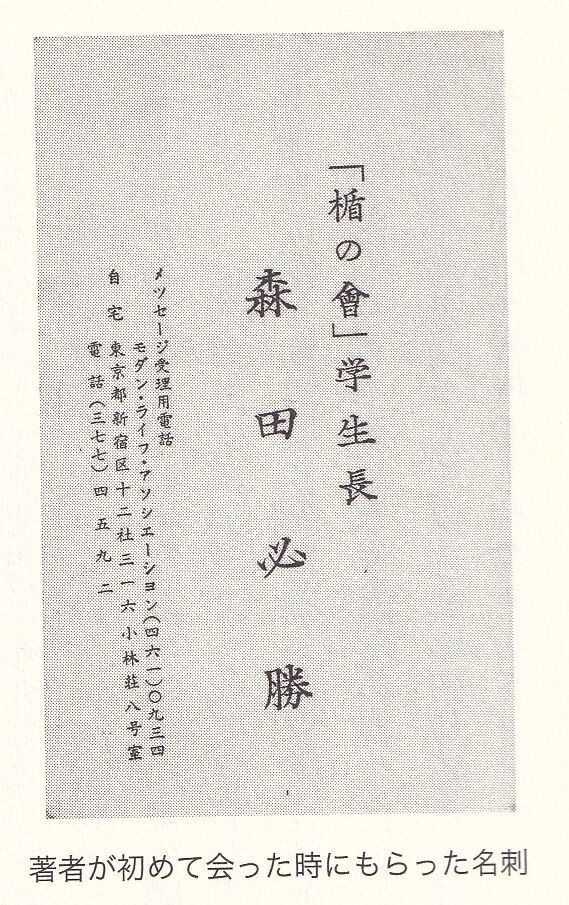 「楯の會」学生長
森田必勝
メッセージ受理用電話
モダン・ライフ・アソシエーション(四六一)〇九三四
自宅 東京都新宿区十二社三一六小林荘八号室
電話(三七七)四五九二
著者が初めて会った時にもらった名刺